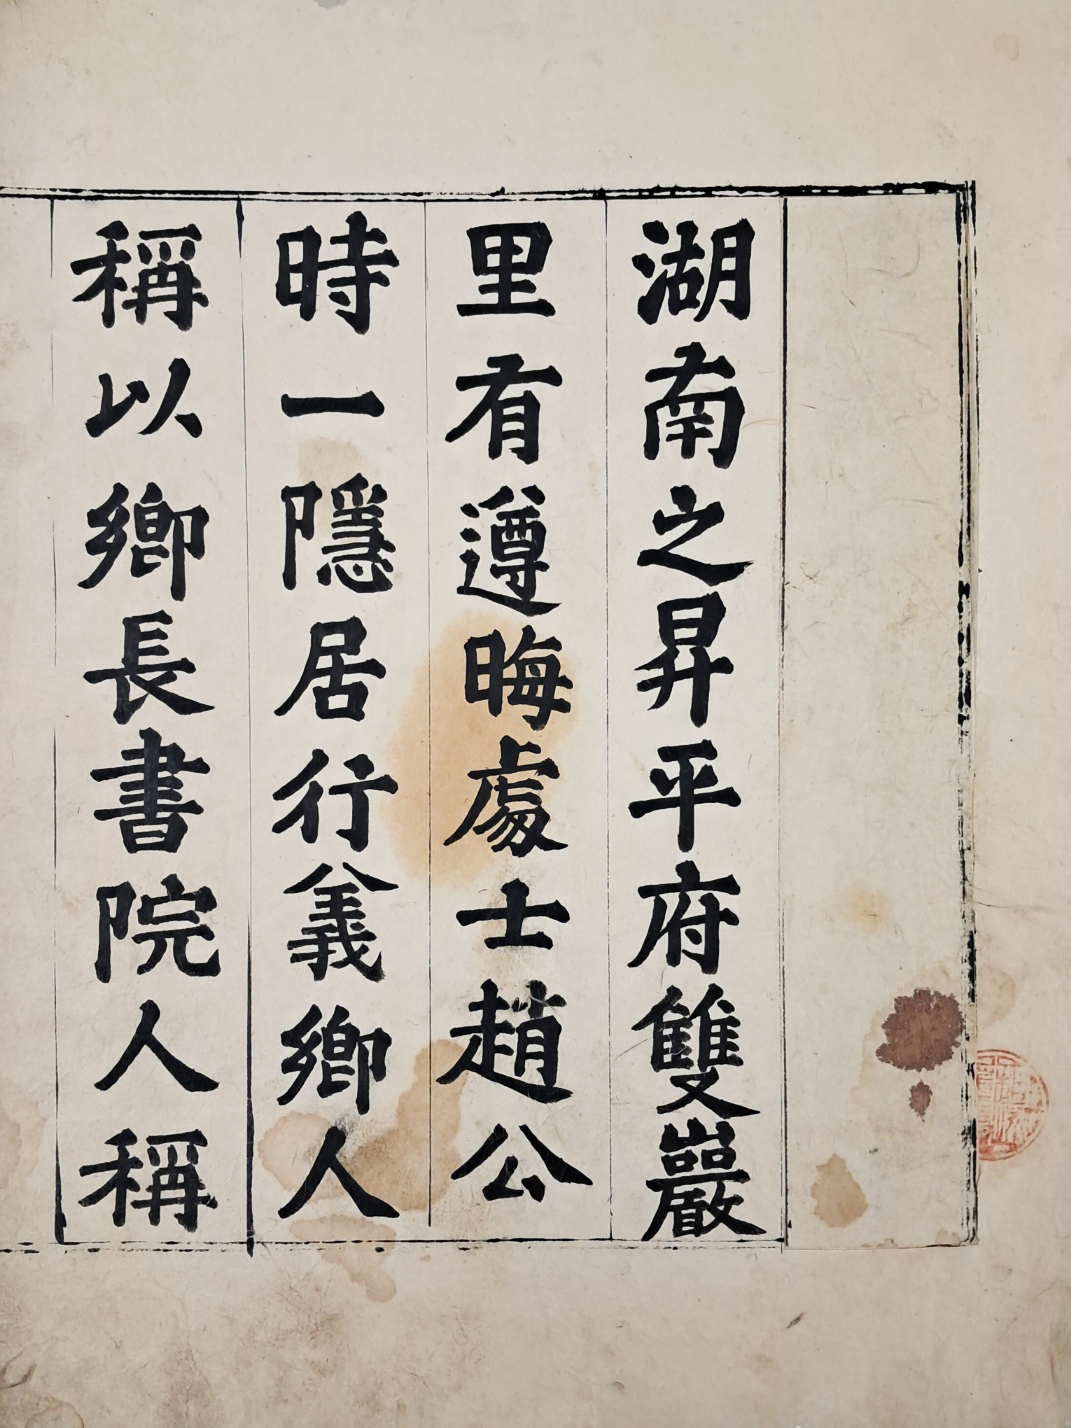 湖南之昇平府雙巖
里有遵晦處士趙公
時一隱居行義鄉人
稱以鄉長書院人稱